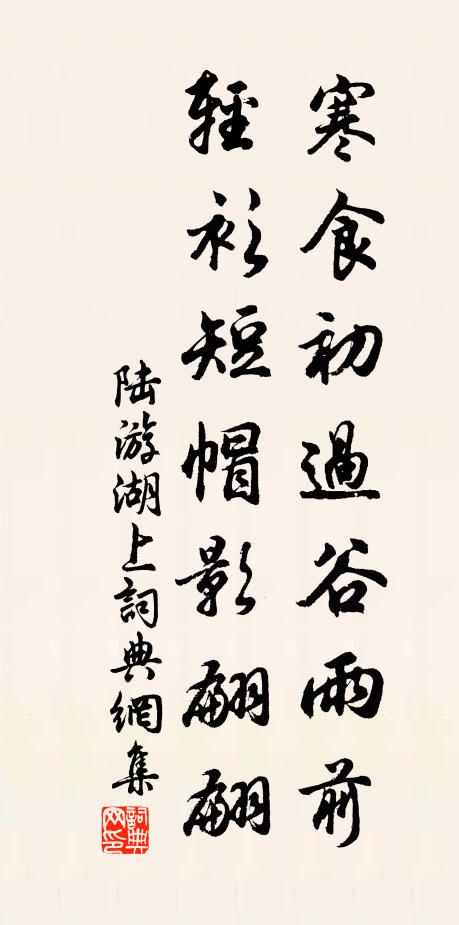 寒食初過谷雨前
輕衫短帽影翩翩
陆游湖上詞典網集
詞典
网印